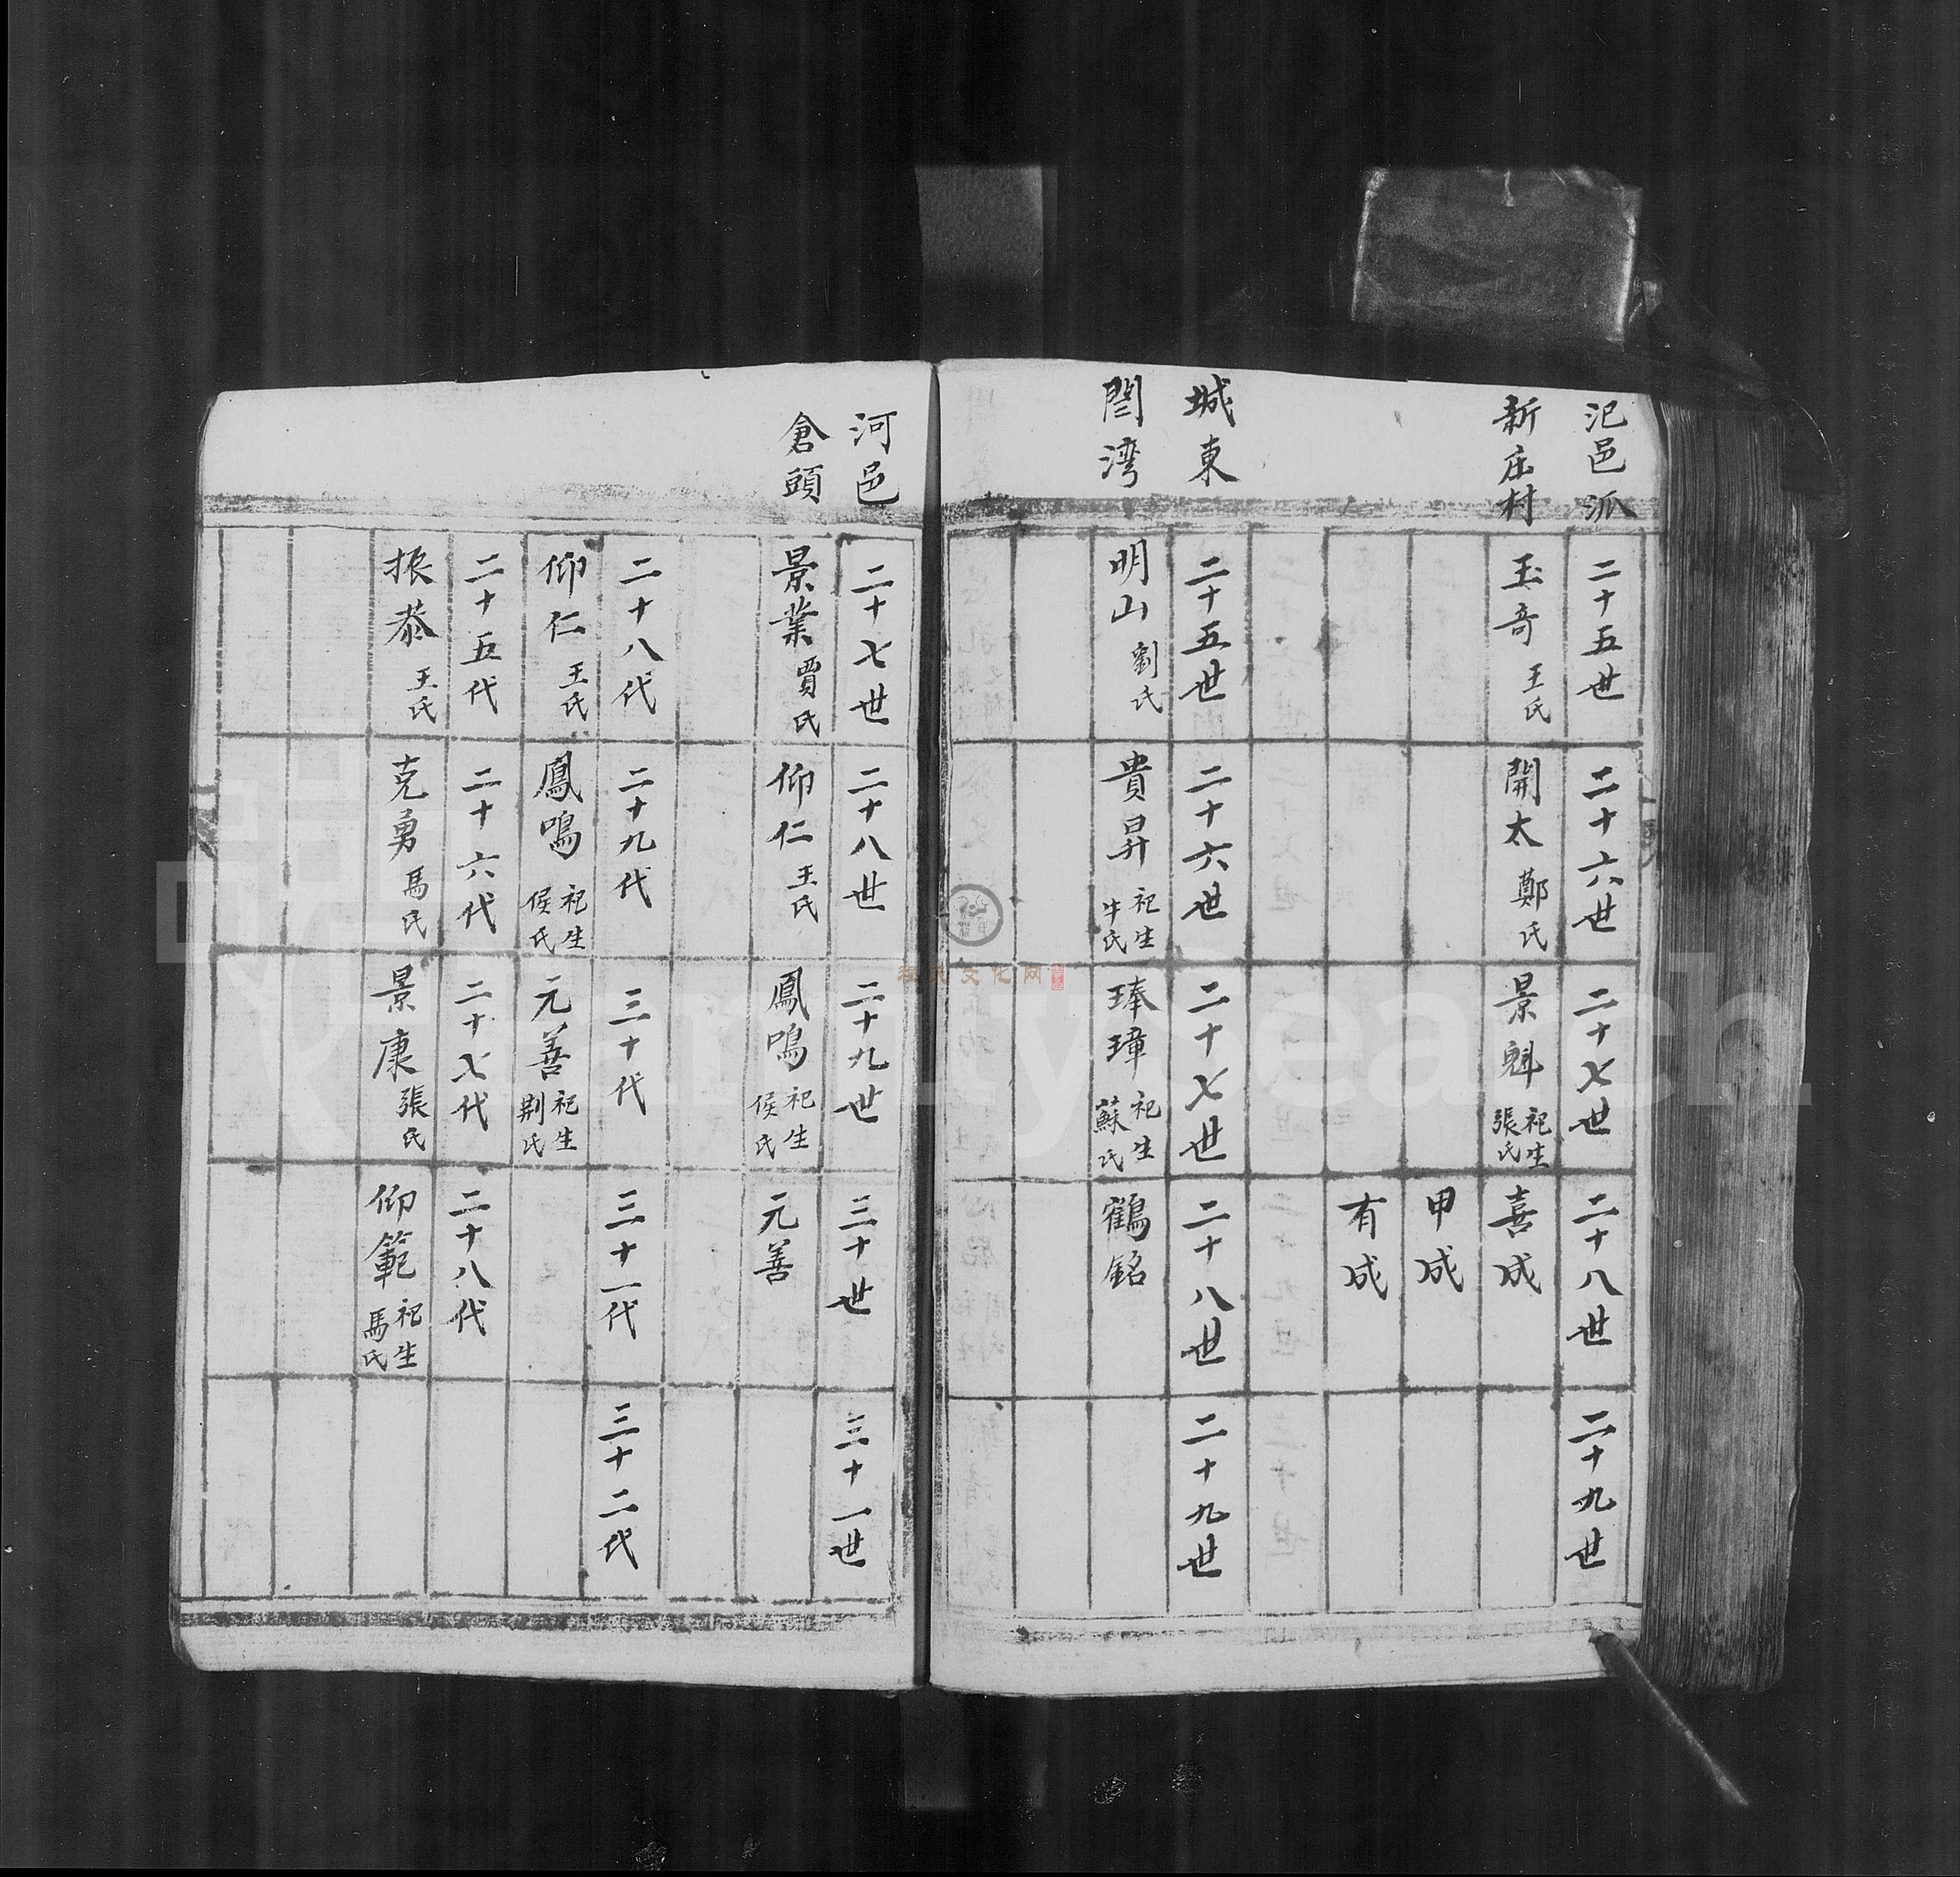 汜邑派
二十五世
二十六世
二十七世
二十八世
二十九世
新庄村
玉奇 王氏
開太 鄭氏
景魁 祀生 張氏
喜成
甲成
有成
城東
二十五世
二十六世
二十七世
二十八世
二十九世
閆湾
明山 劉氏
貴昇 祀生 牛氏
琫璋 祀生 蘇氏
鶴銘
河邑
二十七世
二十八世
二十九世
三十世
三十一世
倉頭
景業 賈氏
仰仁 王氏
鳳鳴 祀生 侯氏
元善
二十八代
二十九代
三十代
三十一代
三十二代
仰仁 王氏
鳳鳴 祀生 侯氏
元善 祀生 荆氏
二十五代
二十六代
二十七代
二十八代
振恭 王氏
克勇 馬氏
景康 張氏
仰範 祀生 馬氏